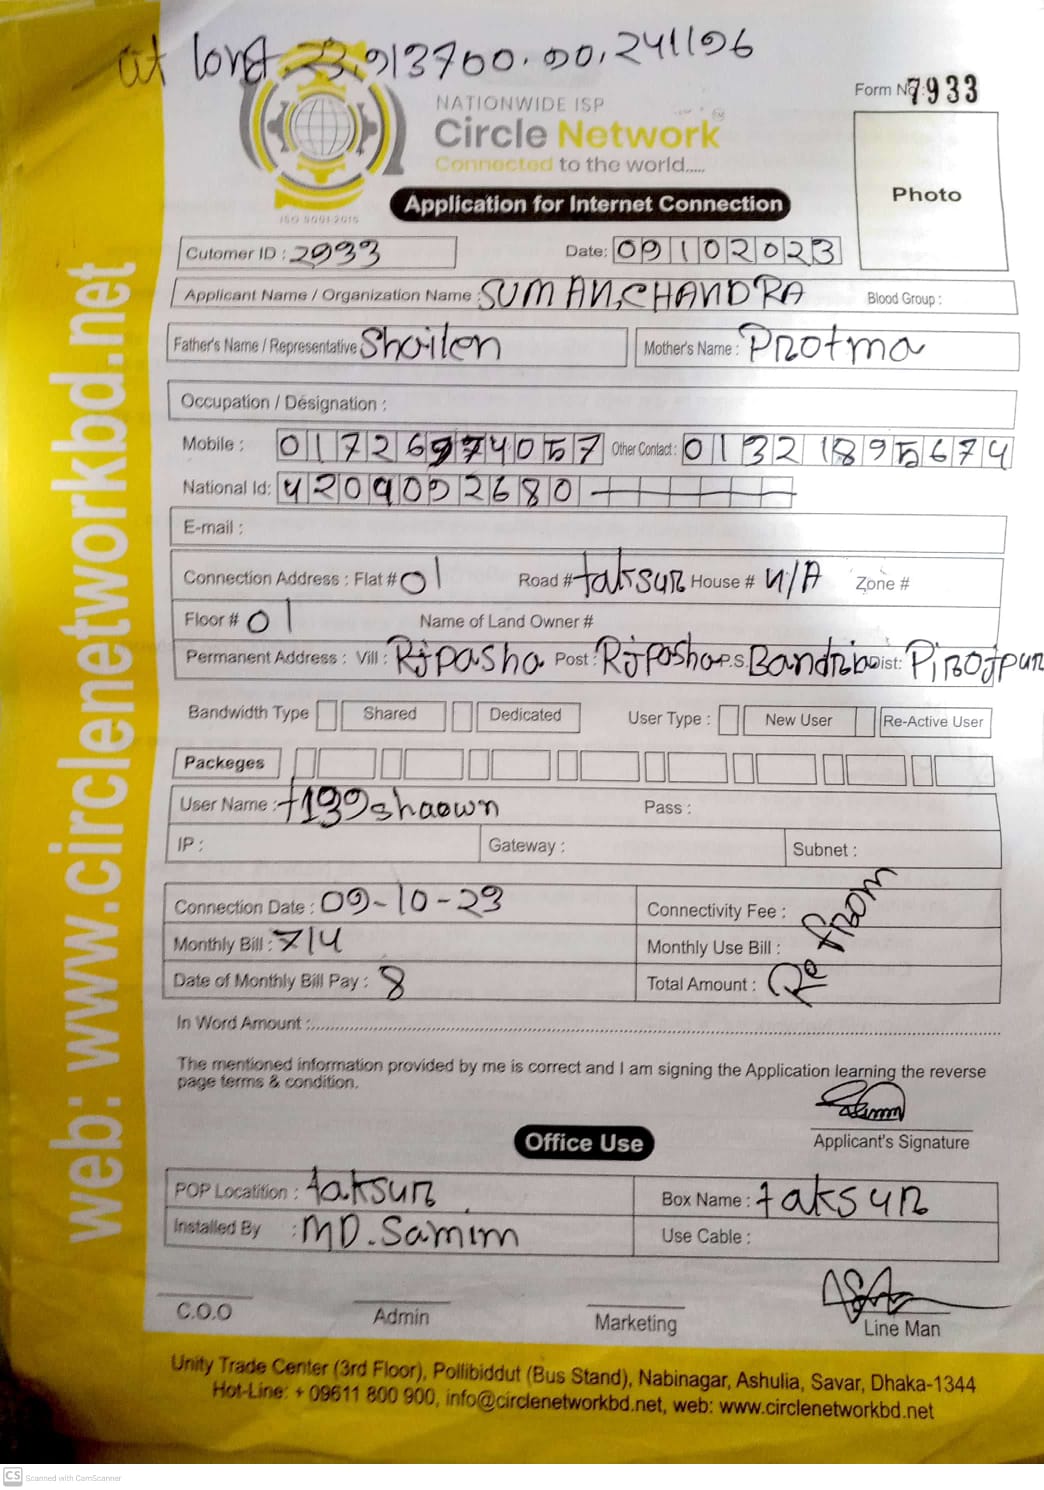 at long 23.913700.90.241196
Form No: 7933
NATIONWIDE ISP
Circle Network
Connected to the world.....
ISO 9001:2015
Photo
Application for Internet Connection
Cutomer ID : 2933 Date: 09102023
Applicant Name / Organization Name : SUMAN CHANDRA Blood Group :
Father's Name / Representative Shoilen Mother's Name : Protma
Occupation / Designation :
Mobile : 01726974057 Other Contact : 01321895674
National Id: 4209052680
E-mail :
Connection Address : Flat # 01 Road # taksur House # N/A Zone #
Floor # 01 Name of Land Owner #
Permanent Address : Vill : Rjpasha Post : Rjpasha P.S. Bandria Dist: Pirojpur
Bandwidth Type Shared Dedicated User Type : New User Re-Active User
Packeges
User Name : t199shaown Pass :
IP : Gateway : Subnet :
Connection Date : 09-10-23 Connectivity Fee :
Monthly Bill : 714 Monthly Use Bill :
Date of Monthly Bill Pay : 8 Total Amount :
Re from
In Word Amount :
The mentioned information provided by me is correct and I am signing the Application learning the reverse
page terms & condition.
Applicant's Signature
Office Use
POP Locatition : taksur Box Name : taksur
Installed By : MD. Samim Use Cable :
C.O.O Admin Marketing Line Man
Unity Trade Center (3rd Floor), Pollibiddut (Bus Stand), Nabinagar, Ashulia, Savar, Dhaka-1344
Hot-Line: + 09611 800 900, info@circlenetworkbd.net, web: www.circlenetworkbd.net
web: www.circlenetworkbd.net
CS Scanned with CamScanner